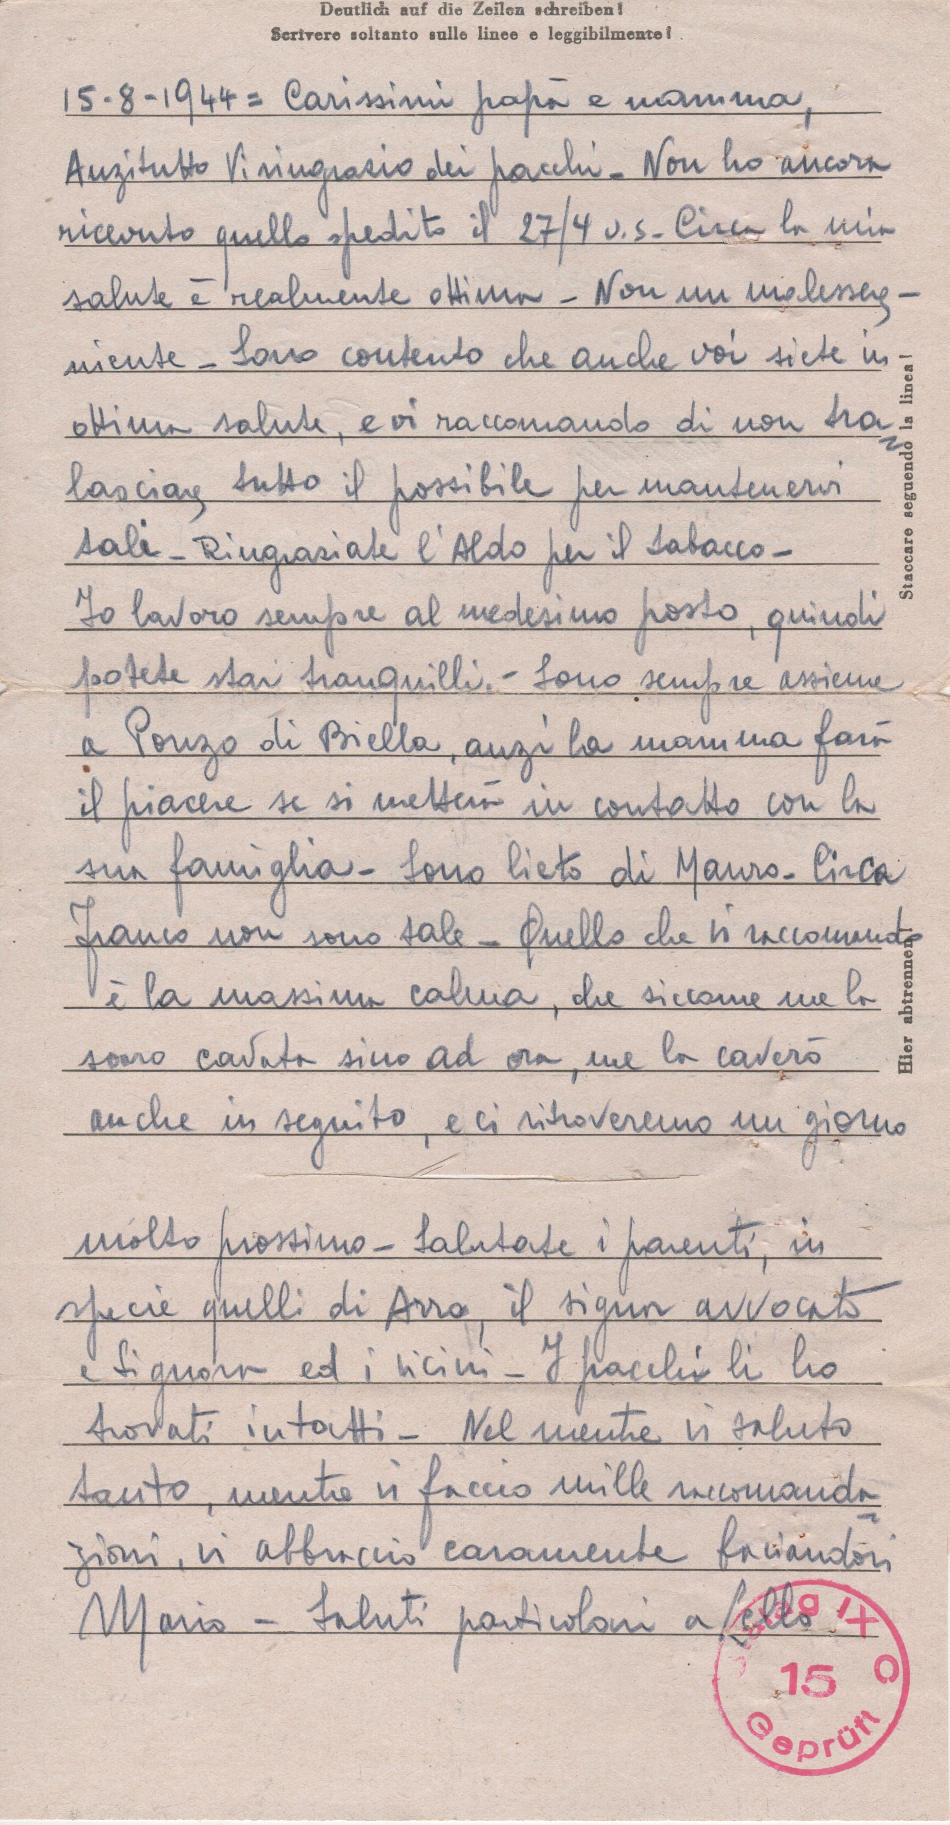 Deutlich auf die Zeilen schreiben!
Scrivere soltanto sulle linee e leggibilmente!
15-8-1944= Carissimi papà e mamma,
Anzitutto Vi ringrazio dei pacchi - Non ho ancora
ricevuto quello spedito il 27/4 u.s. - Circa la mia
salute è realmente ottima - Non un malessere -
niente - Sono contento che anche voi siete in
ottima salute, e vi raccomando di non tra
lasciare tutto il possibile per mantenervi
tali - Ringraziate l'Aldo per il tabacco -
Io lavoro sempre al medesimo posto, quindi
potete star tranquilli. - Sono sempre assieme
a Ponzo di Biella, anzi la mamma farà
il piacere se si metterà in contatto con la
sua famiglia - Sono lieto di Mauro - Circa
Franco non sono tale - Quello che vi raccomando
è la massima calma, che siccome me la
sono cavata sino ad ora, me la caverò
anche in seguito, e ci ritroveremo un giorno
molto prossimo - Salutate i parenti, in
specie quelli di Arro, il signor avvocato
e Signora ed i vicini - I pacchi li ho
trovati intatti - Nel mentre vi saluto
tanto, mentre vi faccio mille raccomanda
zioni, vi abbraccio caramente baciandovi
Mario - Saluti particolari a Lello
Staccare seguendo la linea!
Hier abtrennen!
Stalag IX C
15
Geprüft